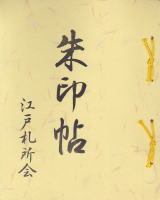 朱印帖
江戸札所会